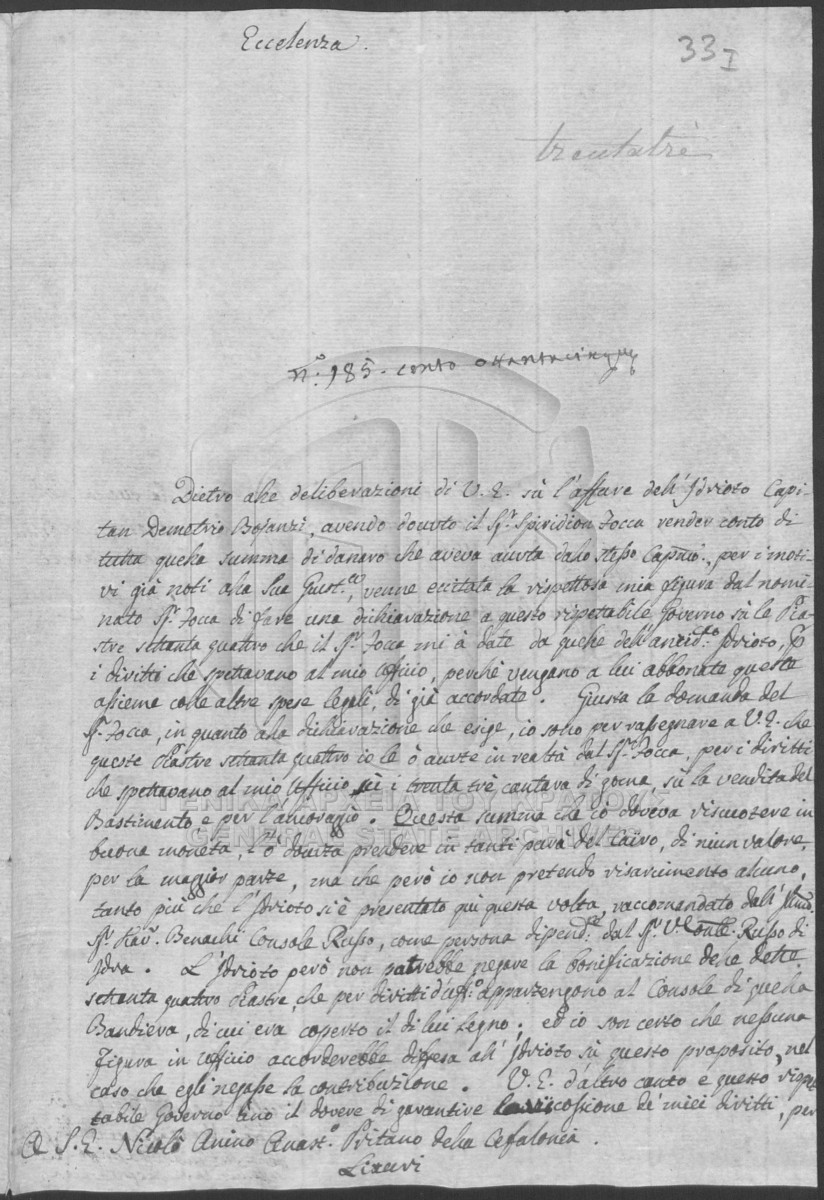 Eccelenza.
33 I
trentatrè
N.º 185. cento ottantacinque
Dietro alle deliberazioni di V. E. sù l'affare dell'Idrioto Capi-
tan Demetrio Bosanzi, avendo douuto il Sr. Spiridion Focca render conto di
tutta quella summa di danaro che aveva auuta dallo stesso Capno., per i moti-
vi già noti alla Sua Giust.a, venne eccitata la rispettosa mia figura dal nomi-
nato Sr. Focca di fare una dichiarazione a questo rispettabile Governo sù le Pia-
stre settanta quattro che il Sr. Focca mi à date da quelle dell'anted.to Idrioto, p
i diritti che spettavano al mio Ufficio, perchè vengano a lui abbonate queste
assieme colle altre spese legali, di già accordate. Giusta la domanda del
Sr. Focca, in quanto alla dichiarazione che esige, io sono per rassegnare a V. E. che
queste Piastre settanta quattro io le ò auute in realtà dal Sr. Focca per i diritti
che spettavano al mio Ufficio sù i trenta trè cantara di goma, sù la vendita del
Bastimento e per l'ancoraggio. Questa summa che io doveva riscuotere in
buona moneta, l'ò douuta prendere in tanti parà del Caìro, di niun valore,
per la maggior parte, ma che però io non pretendo risarcimento alcuno,
tanto più che l'Idrioto si è presentato quì questa volta, raccomandato dall'Illmo.
Sr. Kav.r Benachi Console Russo, come persona dipend.te dal Sr. V. Consle. Russo di
Idra. L'Idrioto però non potrebbe negare la bonificazione delle dette
settanta quattro Piastre, che per diritti d'uff.º appartengono al Console di quella
Bandiera, di cui era coperto il di lui Legno; ed io son certo che nessuna
figura in Ufficio accorderebbe difesa all'Idrioto sù questo proposito, nel
caso che egli negasse la contribuzione. V. E. d'altro canto e questo rispet-
tabile Governo àno il dovere di garantire la riscossione de' miei diritti, per
A S. E. Nicolò Anino Anast.º Pritano della Cefalonia.
Lixuri
ΓΕΝΙΚΑ ΑΡΧΕΙΑ ΤΟΥ ΚΡΑΤΟΥΣ
GENERAL STATE ARCHIVES